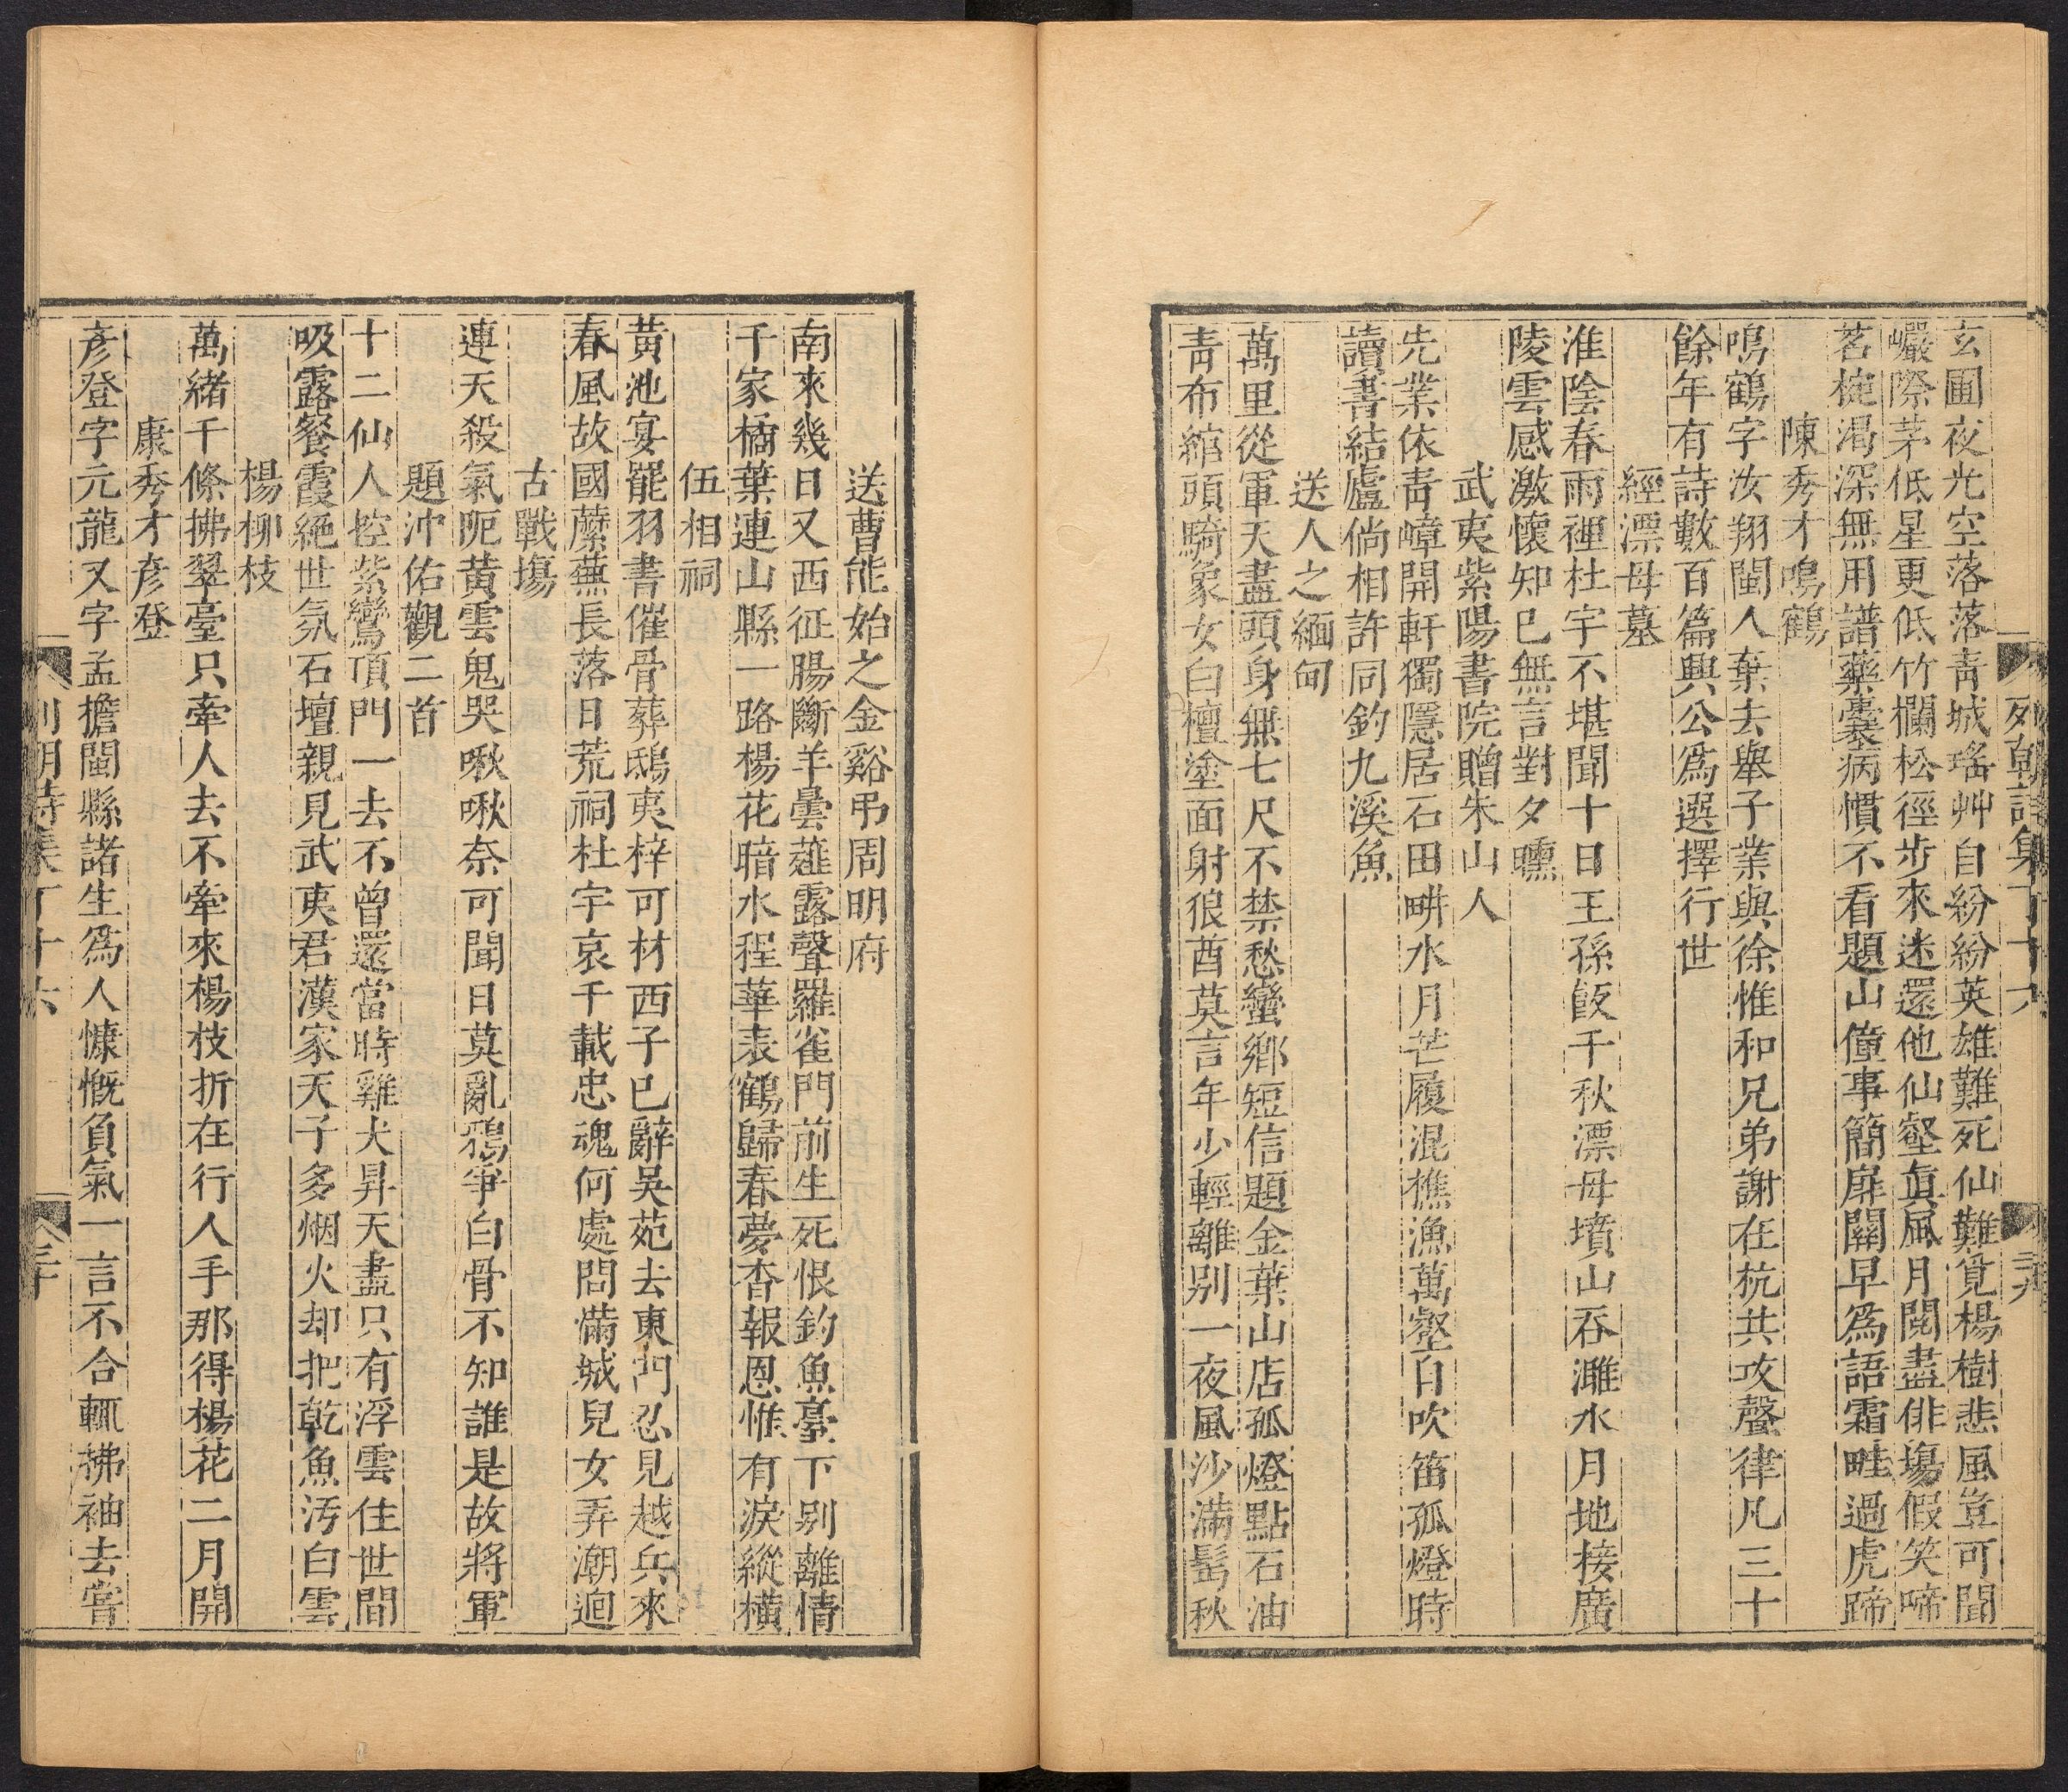 列朝詩集丁十六
二十九
玄圃夜光空落落青城瑤艸自紛紛英雄難死仙難覓楊樹悲風豈可聞
巗際茅低星更低竹欄松徑步來迷還他仙壑眞風月閱盡俳塲假笑啼
茗椀渴深無用譜藥囊病慣不看題山僮事簡扉關早爲語霜畦過虎蹄
陳秀才鳴鶴
鳴鶴字汝翔閩人棄去舉子業與徐惟和兄弟謝在杭共攻聲律凡三十
餘年有詩數百篇興公爲選擇行世
經漂母墓
淮陰春雨裡杜宇不堪聞十日王孫飯千秋漂母墳山吞濉水月地接廣
陵雲感激懷知已無言對夕曛
武夷紫陽書院贈朱山人
先業依青嶂開軒獨隱居石田畊水月芒履混樵漁萬壑白吹笛孤燈時
讀書結廬倘相許同釣九溪魚
送人之緬甸
萬里從軍天盡頭身無七尺不禁愁蠻鄉短信題金葉山店孤燈點石油
青布綰頭騎象女白檀塗面射狼酋莫言年少輕離別一夜風沙滿髩秋
送曹能始之金谿弔周明府
南來幾日又西征腸斷羊曇薤露聲羅雀門前生死恨釣魚臺下別離情
千家橘葉連山縣一路楊花暗水程華表鶴歸春夢杳報恩惟有淚縱橫
伍相祠
黃池宴罷羽書催骨葬鴟夷梓可材西子已辭吳苑去東門忍見越兵來
春風故國蘼蕪長落日荒祠杜宇哀千載忠魂何處問滿城兒女弄潮迴
古戰塲
連天殺氣阨黃雲鬼哭啾啾奈可聞日莫亂鴉爭白骨不知誰是故將軍
題沖佑觀二首
十二仙人控紫鸞頂門一去不曾還當時雞犬昇天盡只有浮雲住世間
吸露餐霞絕世氛石壇親見武夷君漢家天子多烟火却把乾魚汚白雲
楊柳枝
萬緒千條拂翠臺只牽人去不牽來楊枝折在行人手那得楊花二月開
康秀才彥登
彥登字元龍又字孟擔閩縣諸生爲人慷慨負氣一言不合輒拂袖去嘗
列朝詩集丁十六
三十